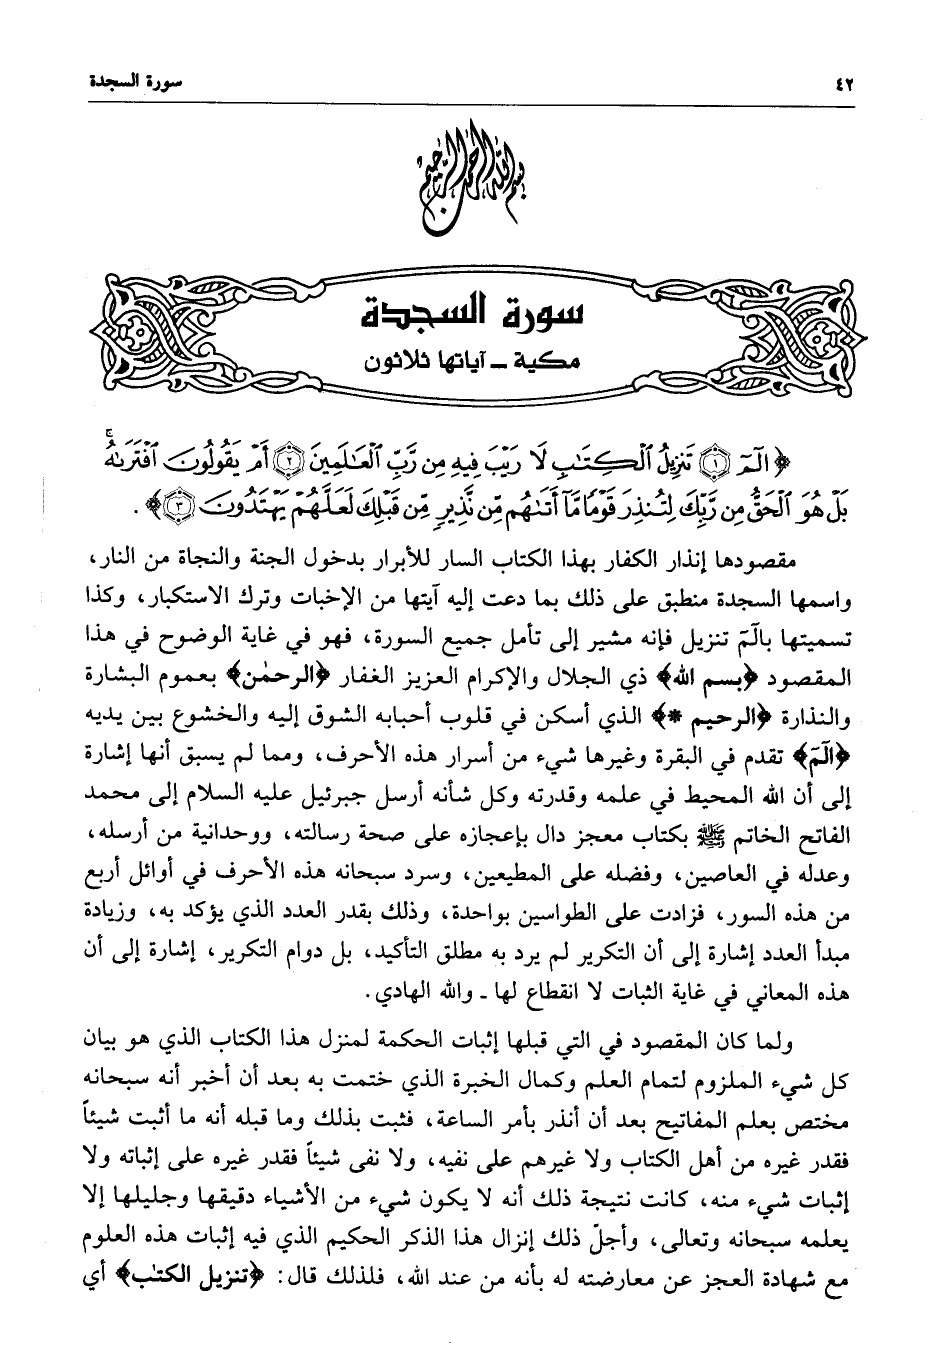 ٤٢ سورة السجدة
بسم الله الرحمن الرحيم
سورة السجدة
مكية ـ آياتها ثلاثون
﴿الٓمٓ ﴿١﴾ تَنزِيلُ ٱلْكِتَٰبِ لَا رَيْبَ فِيهِ مِن رَّبِّ ٱلْعَٰلَمِينَ ﴿٢﴾ أَمْ يَقُولُونَ ٱفْتَرَىٰهُ ۚ
بَلْ هُوَ ٱلْحَقُّ مِن رَّبِّكَ لِتُنذِرَ قَوْمًا مَّآ أَتَىٰهُم مِّن نَّذِيرٍ مِّن قَبْلِكَ لَعَلَّهُمْ يَهْتَدُونَ ﴿٣﴾﴾ .
مقصودها إنذار الكفار بهذا الكتاب السار للأبرار بدخول الجنة والنجاة من النار،
واسمها السجدة منطبق على ذلك بما دعت إليه آيتها من الإخبات وترك الاستكبار، وكذا
تسميتها بالٓمٓ تنزيل فإنه مشير إلى تأمل جميع السورة، فهو في غاية الوضوح في هذا
المقصود ﴿بسم الله﴾ ذي الجلال والإكرام العزيز الغفار ﴿الرحمٰن﴾ بعموم البشارة
والنذارة ﴿الرحيم *﴾ الذي أسكن في قلوب أحبابه الشوق إليه والخشوع بين يديه
﴿الٓمٓ﴾ تقدم في البقرة وغيرها شيء من أسرار هذه الأحرف، ومما لم يسبق أنها إشارة
إلى أن الله المحيط في علمه وقدرته وكل شأنه أرسل جبرئيل عليه السلام إلى محمد
الفاتح الخاتم ﷺ بكتاب معجز دال بإعجازه على صحة رسالته، ووحدانية من أرسله،
وعدله في العاصين، وفضله على المطيعين، وسرد سبحانه هذه الأحرف في أوائل أربع
من هذه السور، فزادت على الطواسين بواحدة، وذلك بقدر العدد الذي يؤكد به، وزيادة
مبدأ العدد إشارة إلى أن التكرير لم يرد به مطلق التأكيد، بل دوام التكرير، إشارة إلى أن
هذه المعاني في غاية الثبات لا انقطاع لها ـ والله الهادي.
ولما كان المقصود في التي قبلها إثبات الحكمة لمنزل هذا الكتاب الذي هو بيان
كل شيء الملزوم لتمام العلم وكمال الخبرة الذي ختمت به بعد أن أخبر أنه سبحانه
مختص بعلم المفاتيح بعد أن أنذر بأمر الساعة، فثبت بذلك وما قبله أنه ما أثبت شيئاً
فقدر غيره من أهل الكتاب ولا غيرهم على نفيه، ولا نفى شيئاً فقدر غيره على إثباته ولا
إثبات شيء منه، كانت نتيجة ذلك أنه لا يكون شيء من الأشياء دقيقها وجليلها إلا
يعلمه سبحانه وتعالى، وأجلّ ذلك إنزال هذا الذكر الحكيم الذي فيه إثبات هذه العلوم
مع شهادة العجز عن معارضته له بأنه من عند الله، فلذلك قال: ﴿تنزيل الكتٰب﴾ أي